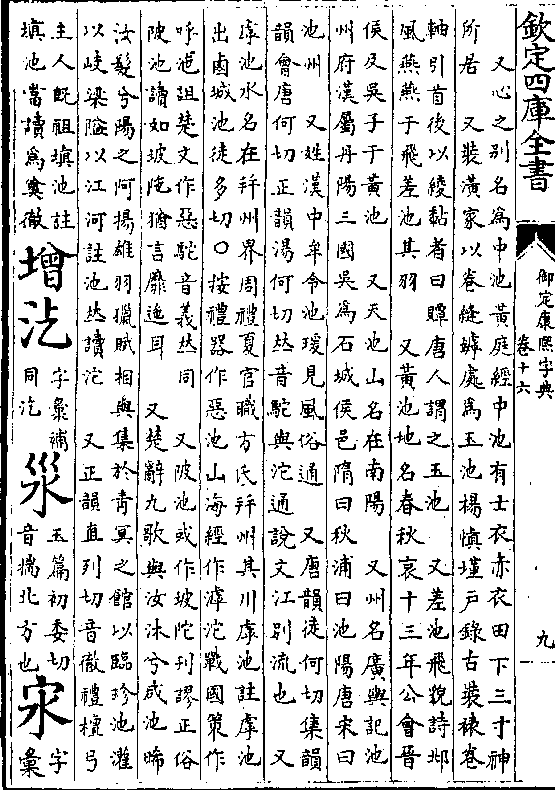 欽定四庫全書
御定康熙字典
卷十六
九
又心之别名為中池黃庭經中池有士衣赤衣田下三寸神
所居 又装潢家以卷縫罅處為玉池楊慎墐戶錄古装裱卷
軸引首後以綾黏者曰贉唐人謂之玉池 又差池飛貌詩邶
風燕燕于飛差池其羽 又黃池地名春秋哀十三年公會晉
侯及吳子于黃池 又天池山名在南陽 又州名廣輿記池
州府漢屬丹陽三國吳為石城侯邑隋曰秋浦曰池陽唐宋曰
池州 又姓漢中牟令池瑗見風俗通 又唐韻徒何切集韻
韻會唐何切正韻湯何切𠀤音駝與沱通說文江别流也 又
虖池水名在幷州界周禮夏官職方氏幷州其川虖池註虖池
出鹵城池徒多切○按禮器作惡池山海經作滹沱戰國策作
呼池詛楚文作惡駝音義𠀤同 又陂池或作坡陀刊謬正俗
陂池讀如坡陀猶言靡迤耳 又楚辭九歌與汝沐兮咸池晞
汝髮兮陽之阿揚雄羽獵賦相與集於靑冥之館以臨珍池灌
以岐梁隘以江河註池𠀤讀沱 又正韻直列切音徹禮檀弓
主人旣祖塡池註
塡池當讀為奠徹
增
字彙補
同汔
玉篇初委切
音揣北方也
字
彙